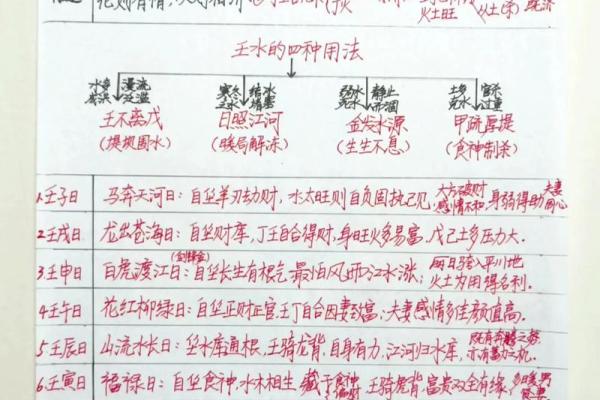 壬水的四种用法
水多成洪 漫流泛滥
寒冬之水 结冰堵塞
弱水死水 静止而涸
土多克水 官杀过重
壬不离戊
日照江河
金发水源
甲疏厚堤
(堤坝固水)
(暖局解冻)
(生生不息)
(食神制杀)
1.壬子日
马奔天河日:自坐羊刃劫财,水太旺则自负固执己见,大方破财感情不和,身弱得助夫妻同心
2.壬戌日
龙出苍海日:自坐财库,丁壬自合得财,身旺火多易富,戊己土多压力大.
3.壬申日
白虎渡江日:(剑锋金)自坐长生有根气,最怕风雨江水涨;雨日骑入平川地火土为用得名利.
4.壬午日
花红柳绿日:自坐正财正官,壬丁自合因妻致富,夫妻感情多佳颜值高.
5.壬辰日
山流水长日:坐水库通根,壬骑龙背,自身有力,江河归水库,既有奔腾之势,亦有蓄力之机.
6.壬寅日
福禄日:自坐食神,水木相生,藏干食神,壬骑虎背,富贵双全有缘,